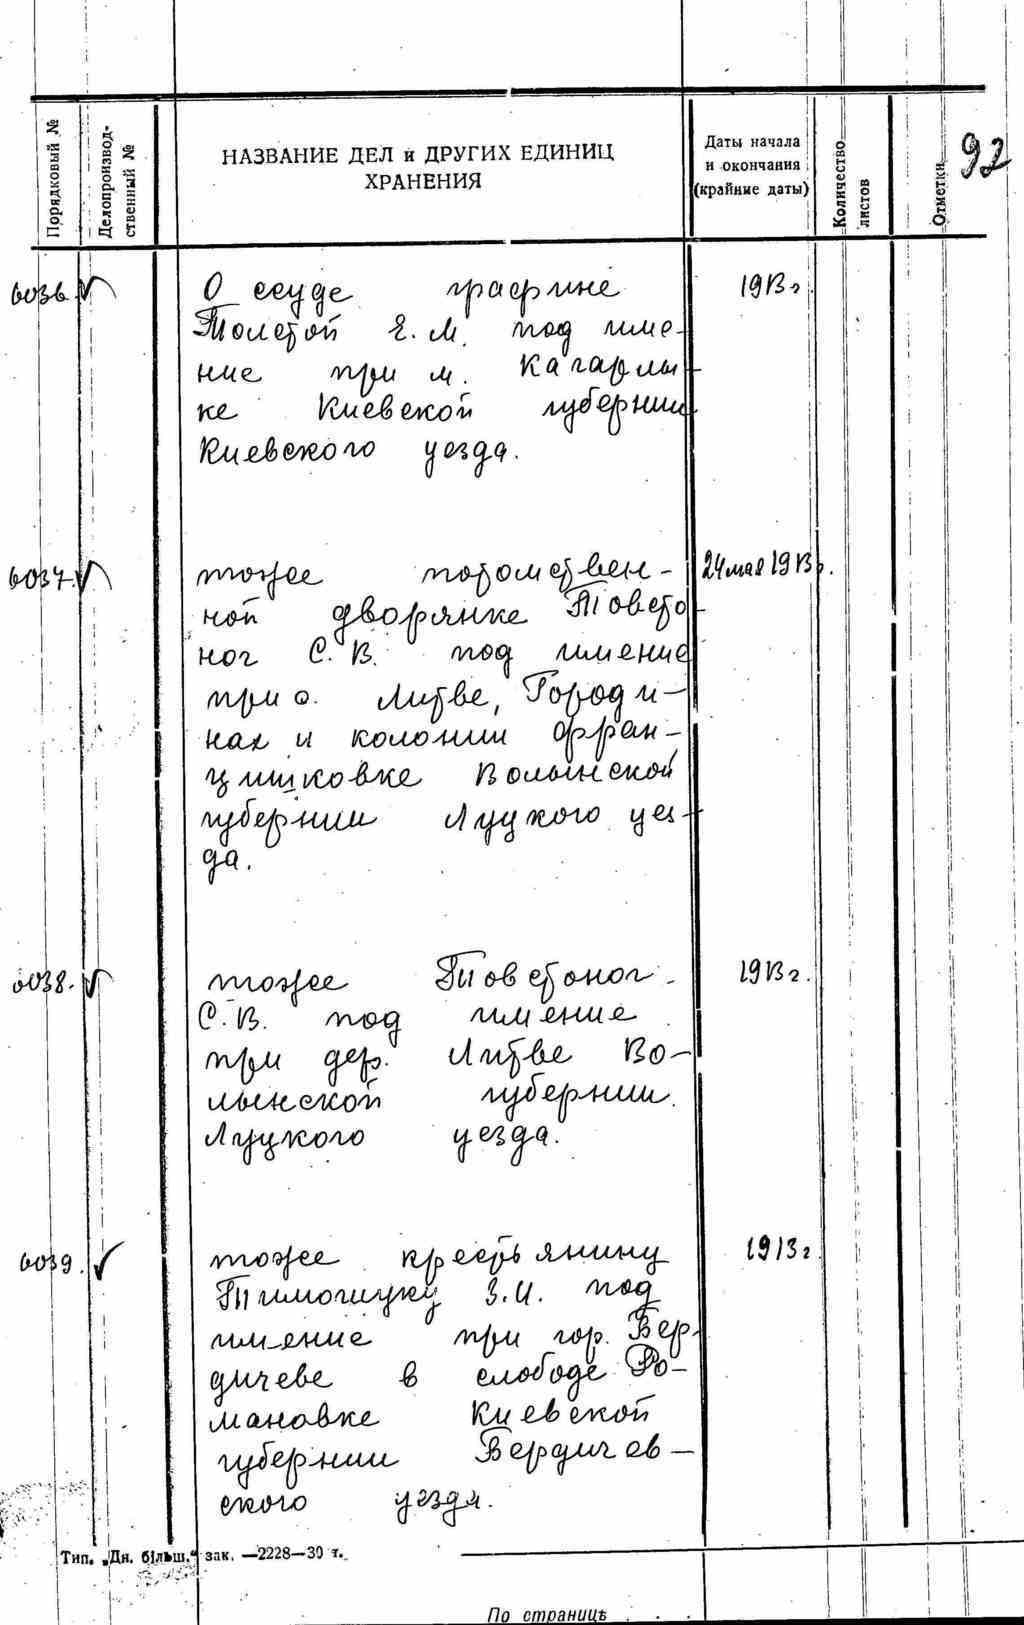 92
Порядковый №
Делопроизвод-
ственный №
НАЗВАНИЕ ДЕЛ и ДРУГИХ ЕДИНИЦ
ХРАНЕНИЯ
Даты начала
и окончания
(крайние даты)
Количество
листов
Отметки
6036.
О ссуде графине
1913 г.
Толстой Е. М. под име-
ние при м. Кагарлы-
ке Киевской губернии
Киевского уезда.
6037.
тоже потомствен-
24 мая 1913 г.
ной дворянке Товсто-
ног С. В. под имение
при с. Литве, Городи-
нах и колонии Фран-
цишковке Волынской
губернии Луцкого уез-
да.
6038.
тоже Товстоног
1913 г.
С. В. под имение
при дер. Литве Во-
лынской губернии
Луцкого уезда.
6039.
тоже крестьянину
1913 г.
Тимощуку З. И. под
имение при гор. Бер-
дичеве в слободе Ро-
мановке Киевской
губернии Бердичев-
ского уезда.
Тип. „Дн. більш.“ зак. —2228—30 т.
По странице